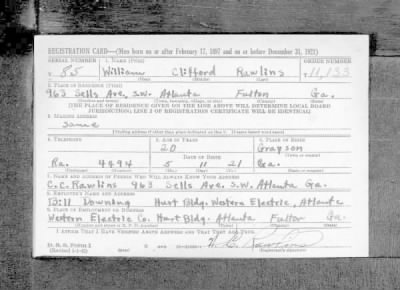 REGISTRATION CARD—(Men born on or after February 17, 1897 and on or before December 31, 1921)
SERIAL NUMBER 1. NAME (Print) ORDER NUMBER
T 85 William Clifford Rawlins T 11,133
(First) (Middle) (Last)
2. PLACE OF RESIDENCE (Print)
963 Sells Ave, S.W. Atlanta Fulton Ga.
(Number and street) (Town, township, village, or city) (County) (State)
[THE PLACE OF RESIDENCE GIVEN ON THE LINE ABOVE WILL DETERMINE LOCAL BOARD
JURISDICTION; LINE 2 OF REGISTRATION CERTIFICATE WILL BE IDENTICAL]
3. MAILING ADDRESS
Same
[Mailing address if other than place indicated on line 2. If same insert word same]
4. TELEPHONE 5. AGE IN YEARS 6. PLACE OF BIRTH
20 Grayson
DATE OF BIRTH
Ra. 4494 5 11 21 Ga.
7. NAME AND ADDRESS OF PERSON WHO WILL ALWAYS KNOW YOUR ADDRESS
C.C. Rawlins 963 Sells Ave. S.W. Atlanta Ga.
8. EMPLOYER'S NAME AND ADDRESS
Bill Downing Hurt Bldg. Western Electric, Atlanta
9. PLACE OF EMPLOYMENT OR BUSINESS
Western Electric Co. Hurt Bldg. Atlanta Fulton Ga.
I AFFIRM THAT I HAVE VERIFIED ABOVE ANSWERS AND THAT THEY ARE TRUE.
D. S. S. Form 1